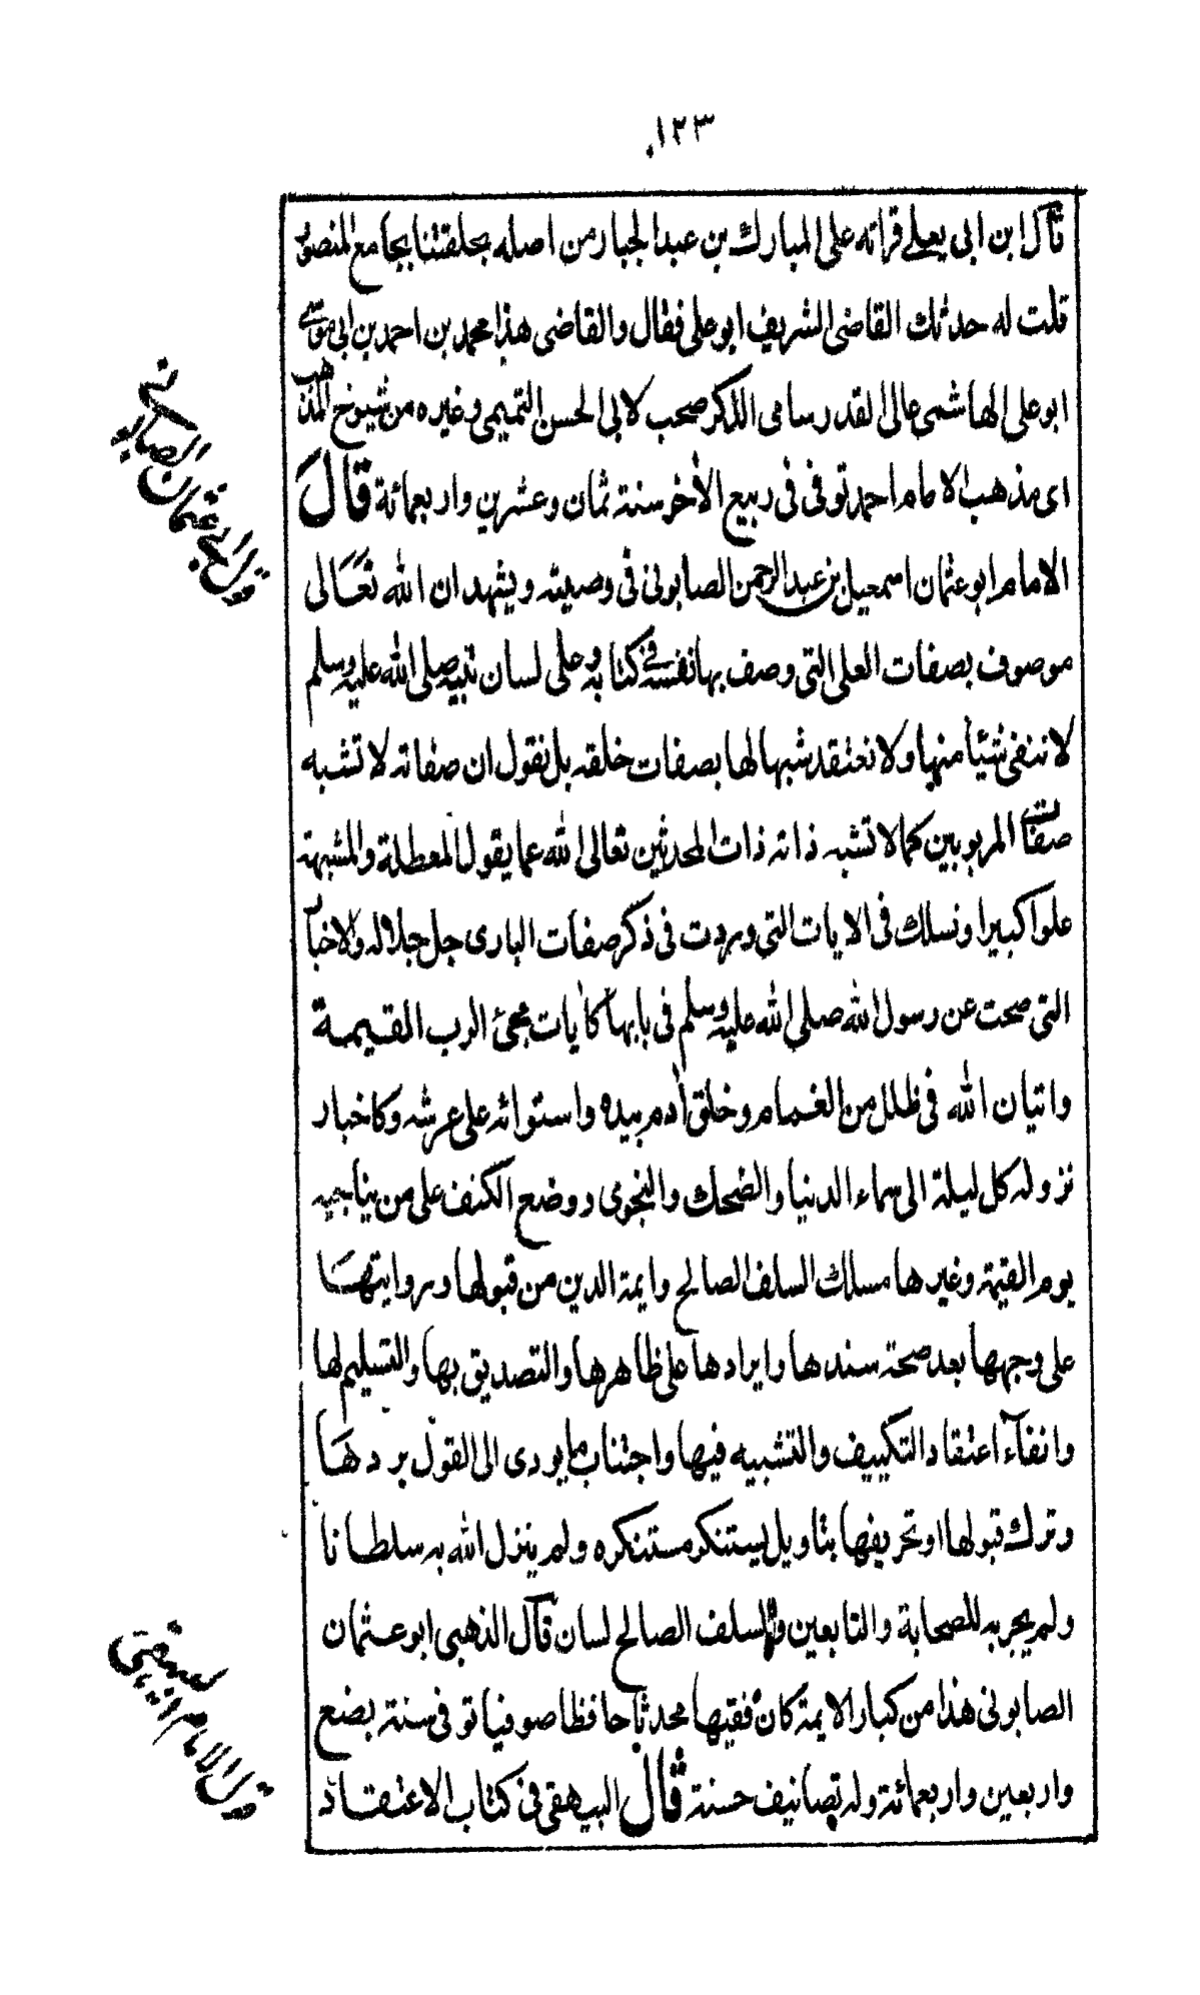 ١٢٣
قال ابن ابى يعلى قراته على المبارك بن عبد الجبار من اصله بحلقتنا بجامع المنصور
قلت له حدثك القاضى الشريف ابو على فقال والقاضى هذا محمد بن احمد بن ابى موسى
ابو على الهاشمى عالى القدر سامى الذكر صحب لابى الحسن التميمى وغيره من شيوخ المذهب
اى مذهب الامام احمد توفى فى ربيع الأخر سنة ثمان وعشرين واربعمائة قال
الامام ابو عثمان اسمعيل بن عبد الرحمن الصابونى فى وصيته ويشهد ان الله تعالى
موصوف بصفات العلى التى وصف بها نفسه فى كتابه وعلى لسان نبيه صلى الله عليه وسلم
لا ننفى شيئا منها ولا نعتقد شبها لها بصفات خلقه بل نقول ان صفاته لا تشبه
صفات المربوبين كما لا تشبه ذاته ذات المحدثين تعالى الله عما يقول المعطلة والمشبهة
علوا كبيرا ونسلك فى الايات التى وردت فى ذكر صفات البارى جل جلاله ولاخبار
التى صحت عن رسول الله صلى الله عليه وسلم فى بابها كأيات مجئ الرب القيمة
واتيان الله فى ظلل من الغمام وخلق أدم بيده واستوائه على عرشه وكاخبار
نزوله كل ليلة الى سماء الدنيا والضحك والنجوى ووضع الكنف على من يناجيه
يوم القيمة وغيرها مسلك السلف الصالح وايمة الدين من قبولها وروايتها
على وجهها بعد صحة سندها وايرادها على ظاهرها والتصديق بها والتسليم لها
وانفآء اعتقاد التكييف والتشبيه فيها واجتناب ما يودى الى القول بردها
وترك قبولها او تحريفها بتاويل يستنكر مستنكره ولم ينزل الله به سلطانا
ولم يجر به للصحابة والتابعين والسلف الصالح لسان قال الذهبى ابو عثمان
الصابونى هذا من كبار الايمة كان فقيها محدثا حافظا صوفيا توفى سنة بضع
واربعين واربعمائة وله تصانيف حسنة قال البيهقى فى كتاب الاعتقاد
قول ابى عثمان الصابونى
قول الامام البيهقى